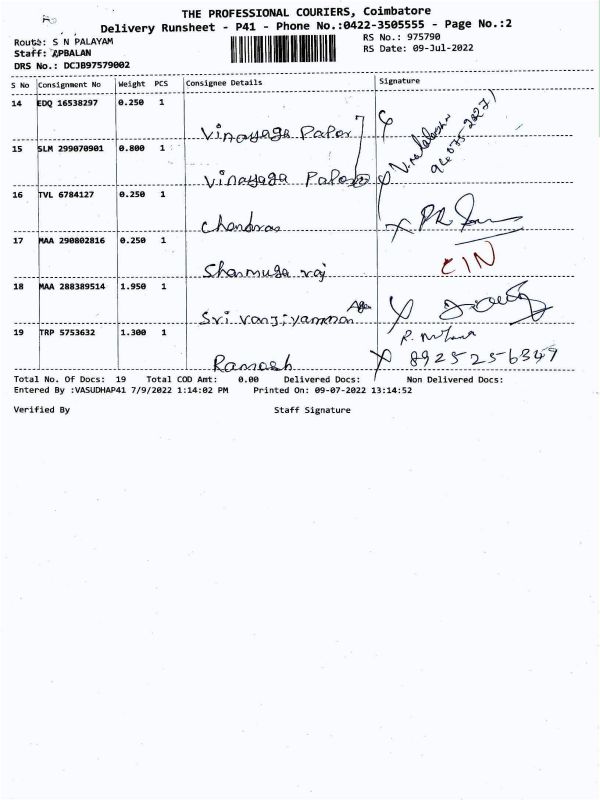 THE PROFESSIONAL COURIERS, Coimbatore
Delivery Runsheet - P41 - Phone No.:0422-3505555 - Page No.:2
Route: S N PALAYAM RS No.: 975790
Staff: APBALAN RS Date: 09-Jul-2022
DRS No.: DCJB97579002
S No Consignment No Weight PCS Consignee Details Signature
14 EDQ 16538297 0.250 1
Vinayaga Paper
15 SLM 299070901 0.800 1
Vinayaga Paper
16 TVL 6784127 0.250 1
Chandras
17 MAA 290802816 0.250 1 CIN
Shanmuga raj
18 MAA 288389514 1.950 1
Sri vanjiyamman
19 TRP 5753632 1.300 1
Ramesh 8925256349
Total No. Of Docs: 19 Total COD Amt: 0.00 Delivered Docs: Non Delivered Docs:
Entered By :VASUDHAP41 7/9/2022 1:14:02 PM Printed On: 09-07-2022 13:14:52
Verified By Staff Signature